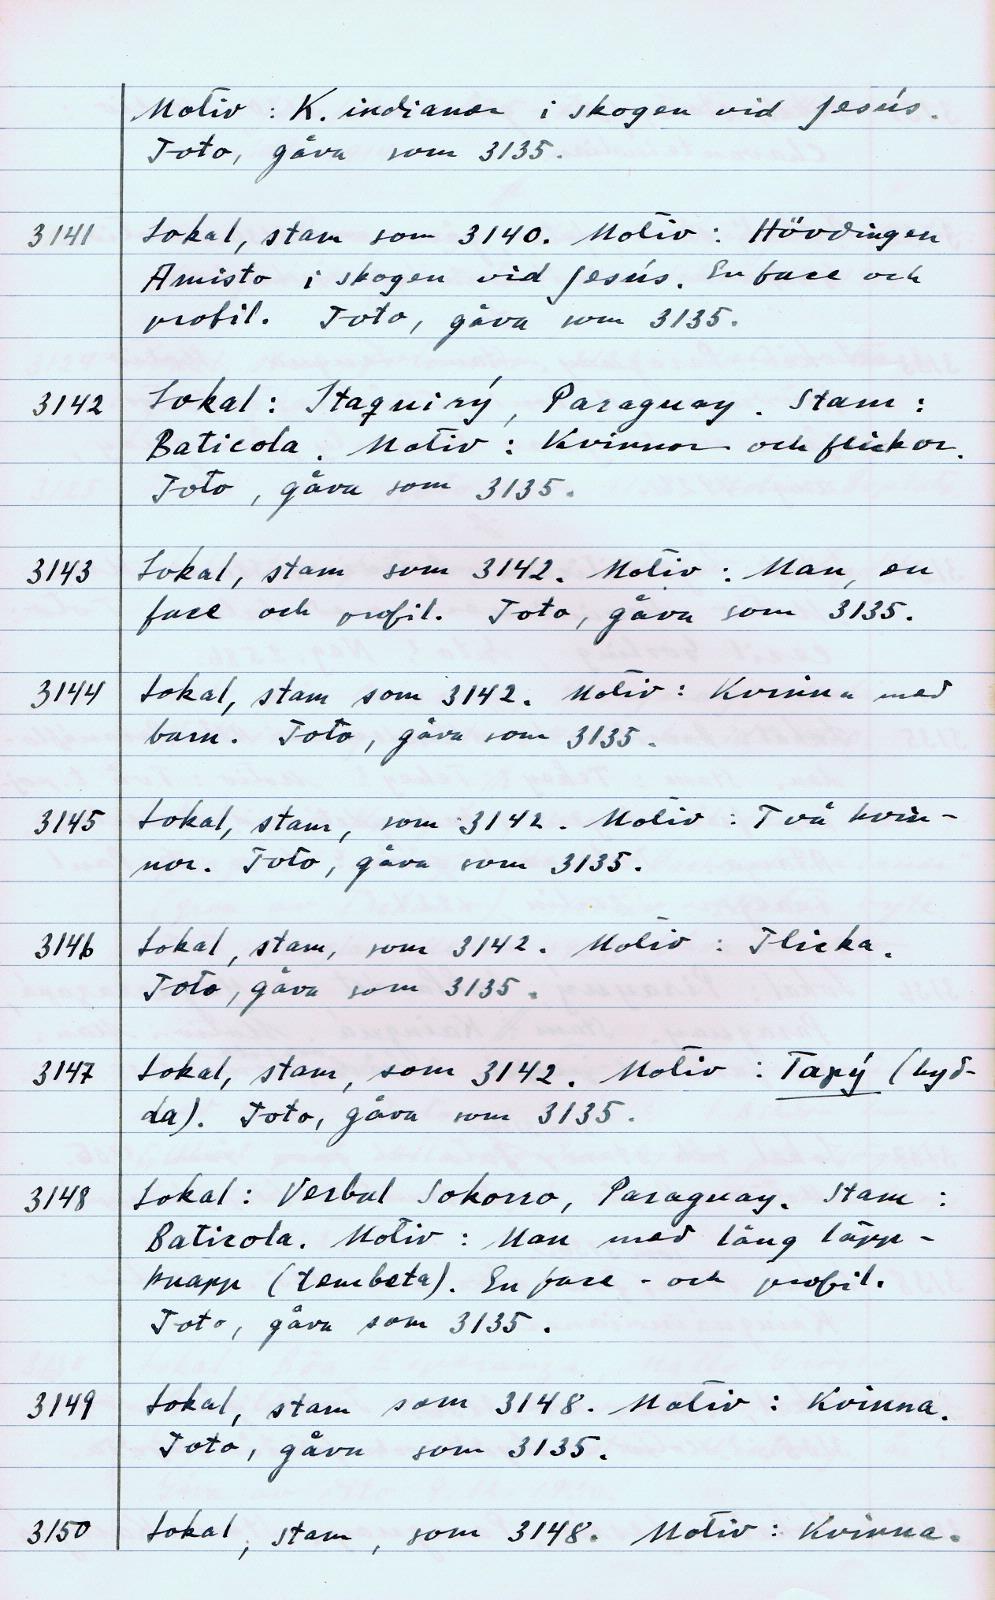 Motiv : K. indianer i skogen vid Jesús.
Foto, gåva som 3135.
3141 Lokal, stam som 3140. Motiv : Hövdingen
Amisto i skogen vid Jesús. En face och
profil. Foto, gåva som 3135.
3142 Lokal : Itaquirý, Paraguay. Stam :
Baticola. Motiv : Kvinnor och flickor.
Foto, gåva som 3135.
3143 Lokal, stam som 3142. Motiv : Man, en
face och profil. Foto, gåva som 3135.
3144 Lokal, stam som 3142. Motiv : Kvinna med
barn. Foto, gåva som 3135.
3145 Lokal, stam, som 3142. Motiv : Två kvin-
nor. Foto, gåva som 3135.
3146 Lokal, stam, som 3142. Motiv : Flicka.
Foto, gåva som 3135.
3147 Lokal, stam, som 3142. Motiv : Tapý (hyd-
da). Foto, gåva som 3135.
3148 Lokal : Verbal Sokorro, Paraguay. Stam :
Baticola. Motiv : Man med lång läpp-
knapp (tembeta). En face - och profil.
Foto, gåva som 3135.
3149 Lokal, stam som 3148. Motiv : Kvinna.
Foto, gåva som 3135.
3150 Lokal, stam, som 3148. Motiv : Kvinna.